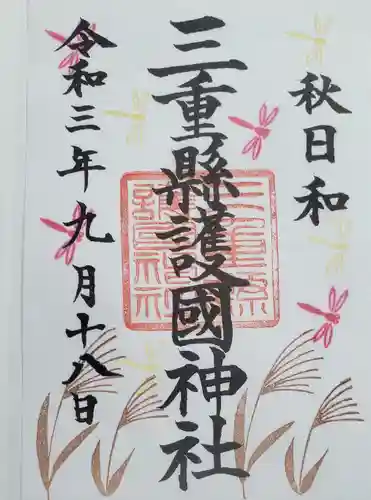 秋日和
三重縣護國神社
令和三年九月十八日
三重縣護國神社